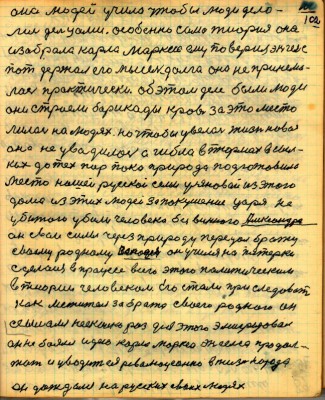 102
она людей учила чтобы люди дело-
лис делцами. особенно само тиория она
изабрала карла Марксе ему поверил энгис
тот держал его мысел долга оно не принема-
лас практически. об этом деле были люди
они строели барикады кров за это место
лилас на людях. но чтобы увелас жизн новая
она не увадилас а гибла в тюрмах в сыл-
ках до тех пор пока природа подготовила
место нашей русской семи уляновой из этого
дома из этих людей за покушение царя не
убитого убили человека бы вшного Александра
он свои силы через природу передал братку
своему родному он учился на пятерки
сделался в працесе всего этого политическим
в тиории человеком его стали приследоват
как мстител за брата своего родного он
ссылали несколко раз для этого эмигрировал
он не боялся идею карла маркса энгелса продол-
жат и уводится революцеонно в жизн порода
он дождался на русских своих людях